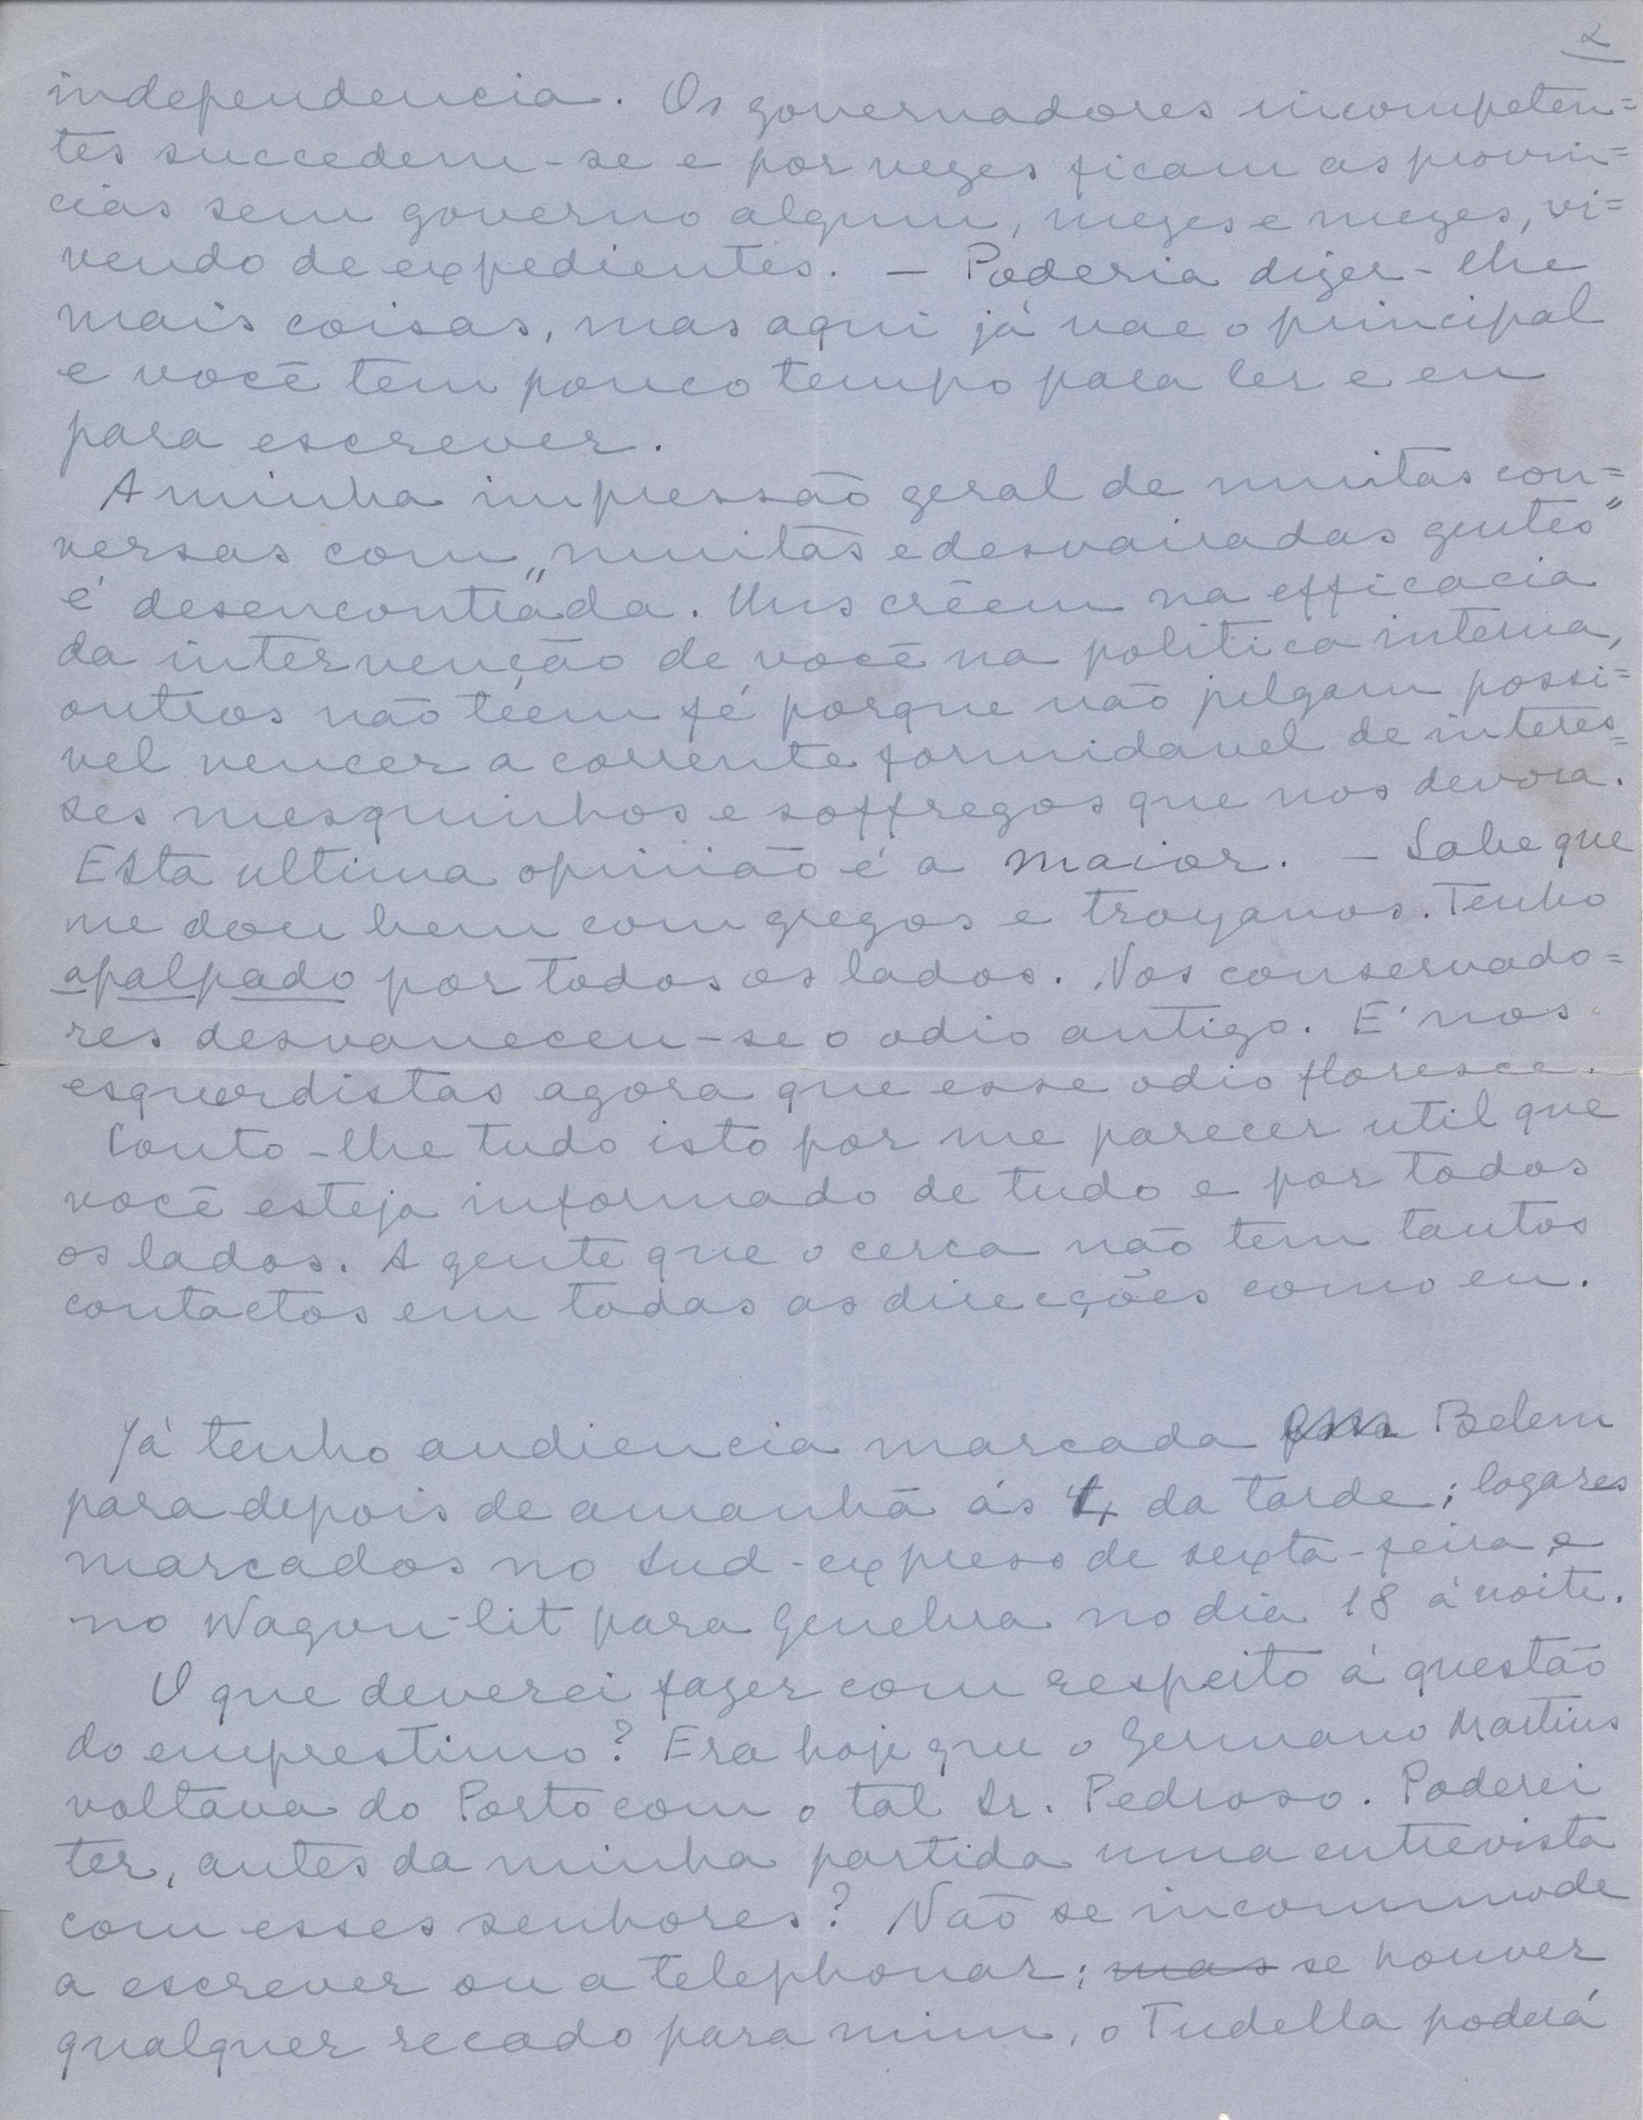 2
independencia. Os governadores incompeten=
tes succedem-se e por vezes ficam as provin=
cias sem governo algum, mezes e mezes, vi=
vendo de expedientes. — Poderia dizer-lhe
mais coisas, mas aqui já vae o principal
e você tem pouco tempo para ler e eu
para escrever.
A minha impressão geral de muitas con=
versas com „muitas e desvairadas gentes”
é desencontrada. Uns crêem na efficacia
da intervenção de você na politica interna,
outros não têem fé porque não julgam possi=
vel vencer a corrente formidavel de interes=
ses mesquinhos e soffregos que nos devora.
Esta ultima opinião é a maior. — Sabe que
me dou bem com gregos e troyanos. Tenho
apalpado por todos os lados. Nos conservado=
res desvaneceu-se o odio antigo. E' nos
esquerdistas agora que esse odio floresce.
Conto-lhe tudo isto por me parecer util que
você esteja informado de tudo e por todos
os lados. A gente que o cerca não tem tantos
contactos em todas as direcções como eu.
Já tenho audiencia marcada em Belem
para depois de amanhã ás 4 da tarde; logares
marcados no Sud-expreso de sexta-feira e
no Wagon-lit para Genebra no dia 18 á noite.
O que deverei fazer com respeito á questão
do emprestimo? Era hoje que o Germano Martins
voltava do Porto com o tal Sr. Pedroso. Poderei
ter, antes da minha partida uma entrevista
com esses senhores? Não se incommode
a escrever ou a telephonar; mas se houver
qualquer recado para mim, o Tudella poderá